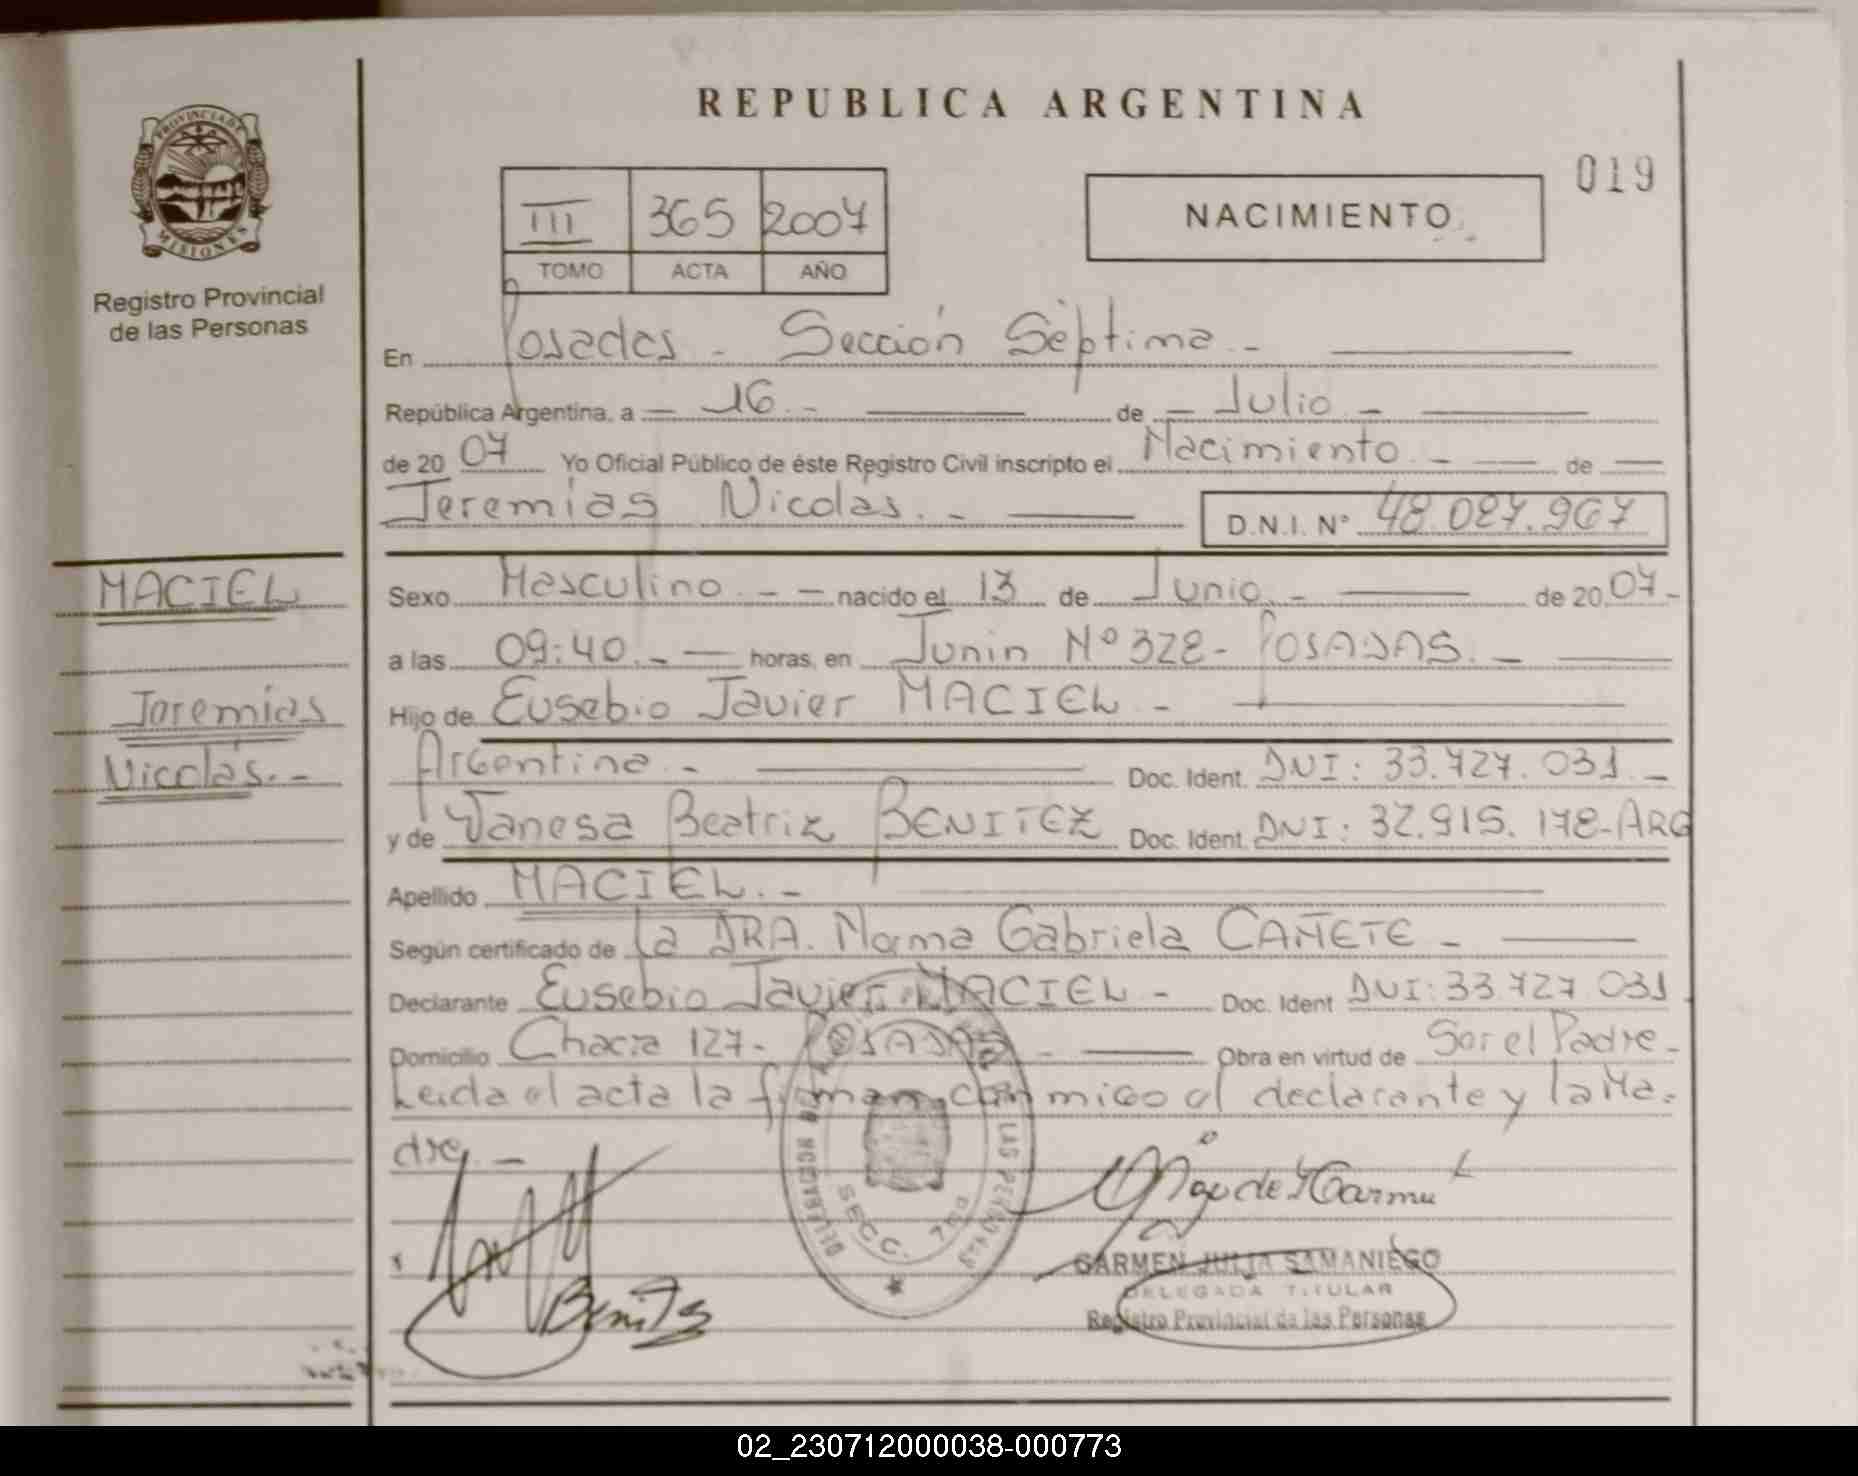 REPUBLICA ARGENTINA
019
PROVINCIA DE
MISIONES
Registro Provincial
de las Personas
III 365 2007
TOMO ACTA AÑO
NACIMIENTO
En Posadas - Sección Séptima.-
República Argentina, a - 16.- de - Julio.-
de 2007 Yo Oficial Público de éste Registro Civil inscripto el Nacimiento.- de
Jeremías Nicolás.- D.N.I. N° 48.087.967
MACIEL
Jeremías
Nicolás.-
Sexo Masculino.-- nacido el 13 de Junio.- de 2007-
a las 09:40.- horas, en Junin Nº 328- POSADAS.-
Hijo de Eusebio Javier MACIEL-
Argentina.- Doc. Ident. DNI: 33.727.031.-
y de Vanesa Beatriz BENITEZ Doc. Ident. DNI: 32.915.178-ARG
Apellido MACIEL.-
Según certificado de la DRA. Norma Gabriela CAÑETE-
Declarante Eusebio Javier MACIEL- Doc. Ident DNI: 33.727.031
Domicilio Chacra 127- POSADAS- Obra en virtud de Ser el Padre-
Leída el acta la firman conmigo el declarante y la Ma-
dre.-
SECC. 7
Benitez
CARMEN JULIA SAMANIEGO
DELEGADA TITULAR
Registro Provincial de las Personas
02_230712000038-000773